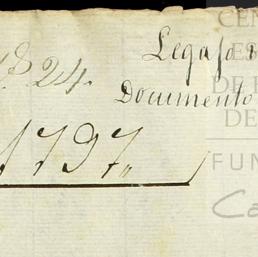 24.
Legajo
Documento
1797,,
CEN
ES
DE
DE
FUN
Ca